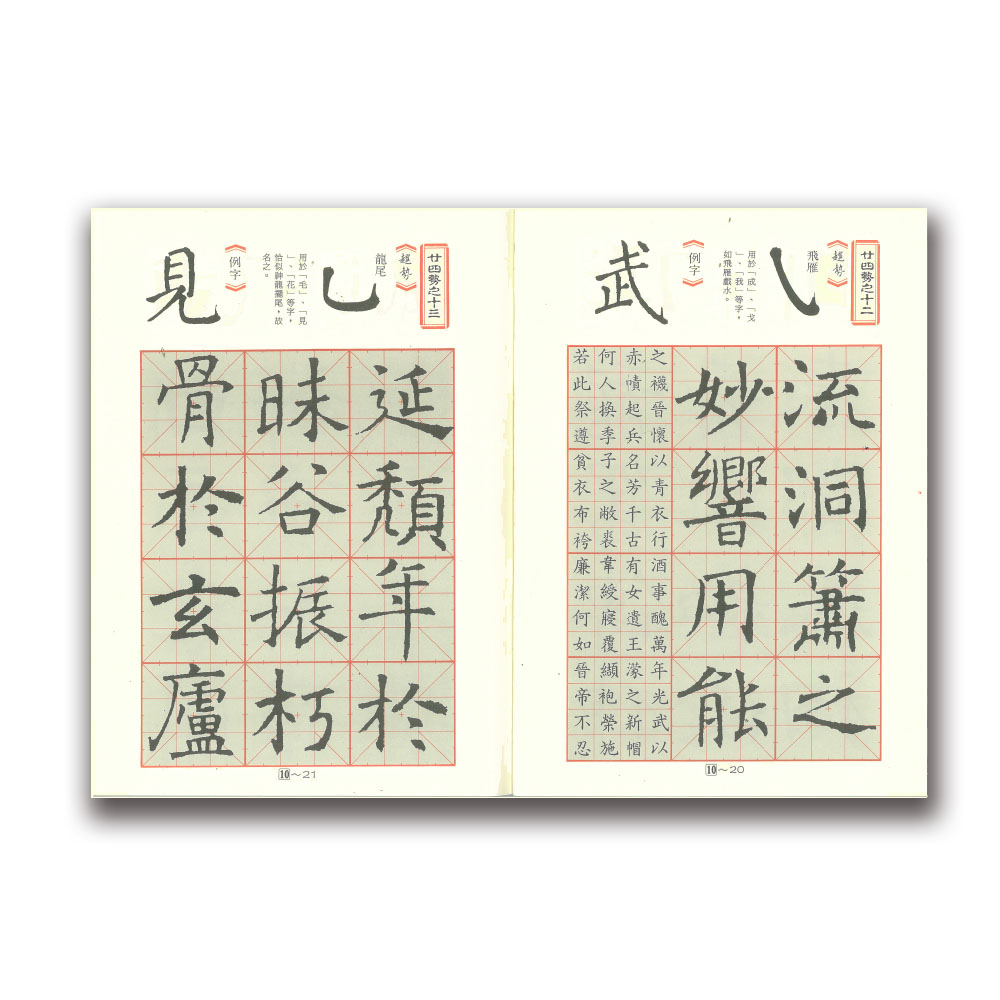 廿四勢之十二
《趯勢》
飛雁
用於「成」、「戈
」、「我」等字,
如飛雁戲水。
《例字》
武
流洞簫之
妙響用能
之襪晉懷以青衣行酒事醜萬年光武以
赤幘起兵名芳千古有女遺王濛之新帽
何人換季子之敝裘韋綬寢覆纈袍榮施
若此祭遵貧衣布袴廉潔何如晉帝不忍
10~20
廿四勢之十三
《趯勢》
龍尾
用於「毛」、「見
」、「花」等字,
恰似神龍擺尾,故
名之。
《例字》
見
延頽年於
昧谷振朽
骨於玄廬
10~21